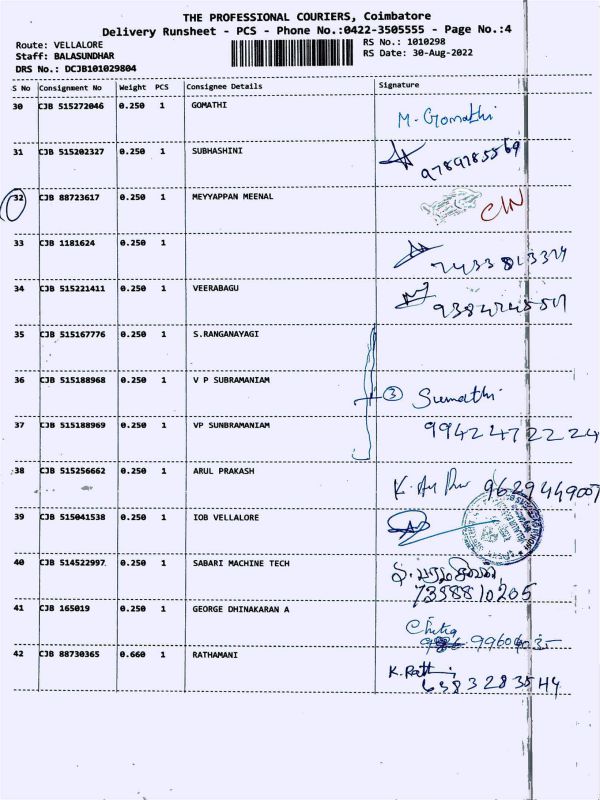 THE PROFESSIONAL COURIERS, Coimbatore
Delivery Runsheet - PCS - Phone No.:0422-3505555 - Page No.:4
Route: VELLALORE
RS No.: 1010298
Staff: BALASUNDHAR
RS Date: 30-Aug-2022
DRS No.: DCJB101029804
S No Consignment No Weight PCS Consignee Details Signature
30 CJB 515272046 0.250 1 GOMATHI M. Gomathi
31 CJB 515202327 0.250 1 SUBHASHINI 9789785569
32 CJB 88723617 0.250 1 MEYYAPPAN MEENAL
33 CJB 1181624 0.250 1
34 CJB 515221411 0.250 1 VEERABAGU
35 CJB 515167776 0.250 1 S.RANGANAYAGI
36 CJB 515188968 0.250 1 V P SUBRAMANIAM 3 Sumathi
37 CJB 515188969 0.250 1 VP SUNBRAMANIAM 9942472224
38 CJB 515256662 0.250 1 ARUL PRAKASH 9629449007
39 CJB 515041538 0.250 1 IOB VELLALORE
40 CJB 514522997 0.250 1 SABARI MACHINE TECH
7358810205
41 CJB 165019 0.250 1 GEORGE DHINAKARAN A
42 CJB 88730365 0.660 1 RATHAMANI